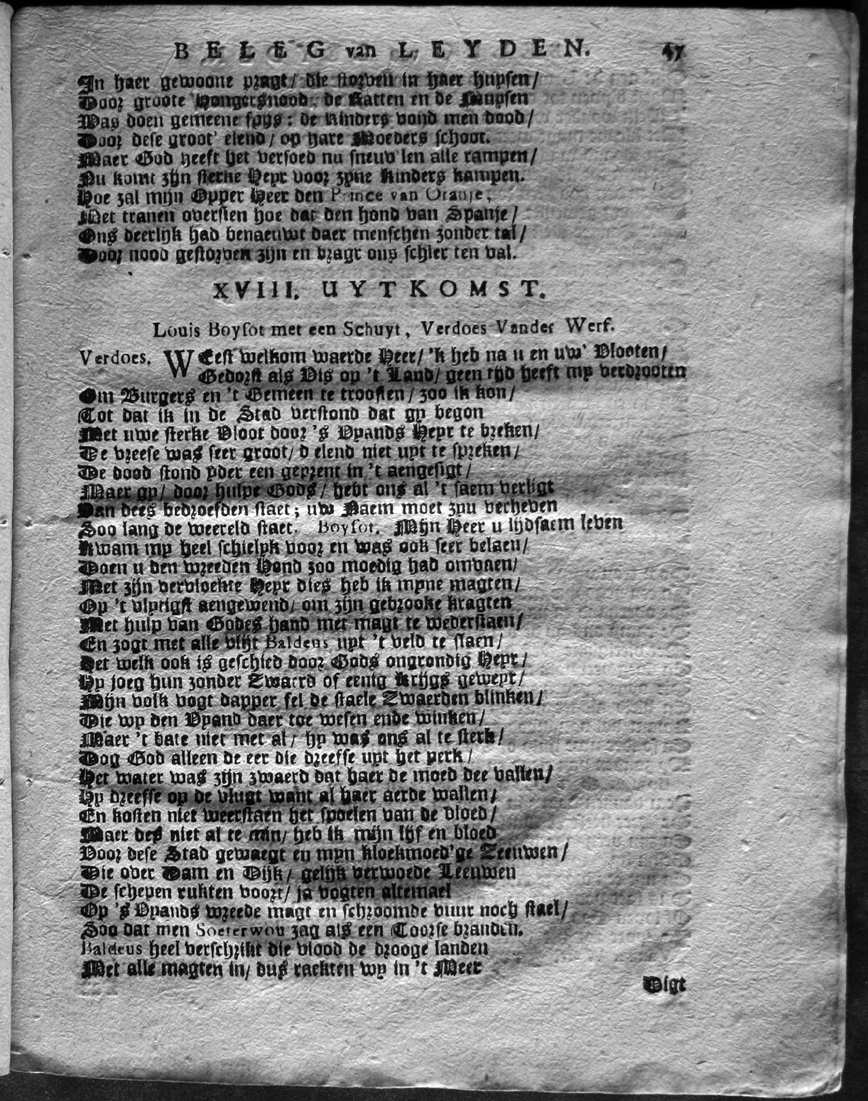 BELEG van LEYDEN. 47
In haer gewoone pragt/ die storven in haer huysen/
Door groote Hongersnood, de Katten en de Muysen
Was doen gemeene spys: de Kinders vond men dood/
Door dese groot' elend/ op hare Moeders schoot.
Maer God heeft het versoed nu sneuv'len alle rampen/
Nu komt zijn sterke Heyr voor zyne Kinders kampen.
Hoe zal mijn Opper Heer den Prince van Oranje,
Met tranen oversien hoe dat den hond van Spanje/
Ons deerlijk had benaeuwt daer menschen zonder tal/
Door nood gestorven zijn en bragt ons schier ten val.
XVIII. UYTKOMST.
Louis Boysot met een Schuyt, Verdoes Vander Werf.
Verdoes. WEest welkom waerde Heer/ 'k heb na u en uw' Vlooten/
Gedorst als Vis op 't Land/ geen tijd heeft my verdrooten
Om Burgers en 't Gemeen te troosten/ zoo ik kon/
Tot dat ik in de Stad verstond dat gy begon
Met uwe sterke Vloot door 's Vyands Heyr te breken/
De vreese was seer groot/ d elend niet uyt te spreken/
De dood stond yder een geprent in 't aengesigt/
Maer gy/ door hulpe Gods/ hebt ons al 't saem verligt
Van dees bedroefden staet; uw Naem moet zyn verheven
Soo lang de weereld staet. Boysot. Mijn Heer u lijdsaem leven
Kwam my heel schielyk voor en was ook seer belaen/
Doen u den wreeden Hond zoo moedig had omvaen/
Met zijn vervloekte Heyr dies heb ik myne magten/
Op 't vlytigst aengewend/ om zijn gebrooke kragten
Met hulp van Godes hand met magt te wederstaen/
En zogt met alle vlijt Baldeus uyt 't veld te slaen/
Het welk ook is geschied door Gods ongrondig Heyr/
Hy joeg hun zonder Zwaerd of eenig Krijgs geweyr/
Mijn volk vogt dapper fel de staele Zwaerden blinken/
Die wy den Vyand daer toe wesen ende winken/
Maer 't bate niet met al/ hy was ons al te sterk/
Dog God alleen de eer die dreefse uyt het perk/
Het water was zijn zwaerd dat haer de moed dee vallen/
Hy dreefse op de vlugt want al haer aerde wallen/
En kosten niet weerstaen het spoelen van de vloed/
Maer des niet al te min/ heb ik mijn lijf en bloed
Voor dese Stad gewaegt en myn kloekmoed'ge Zeeuwen/
Die over Dam en Dijk/ gelijk verwoede Leeuwen
De schepen rukten voort/ ja vogten altemael
Op 's Vyands wreede magt en schroomde vuur noch stael/
Soo dat men Soeterwou zag als een Toorse branden.
Baldeus heel verschrikt die vlood de drooge landen
Met alle magten in/ dus raekten wy in 't Meer
Digt